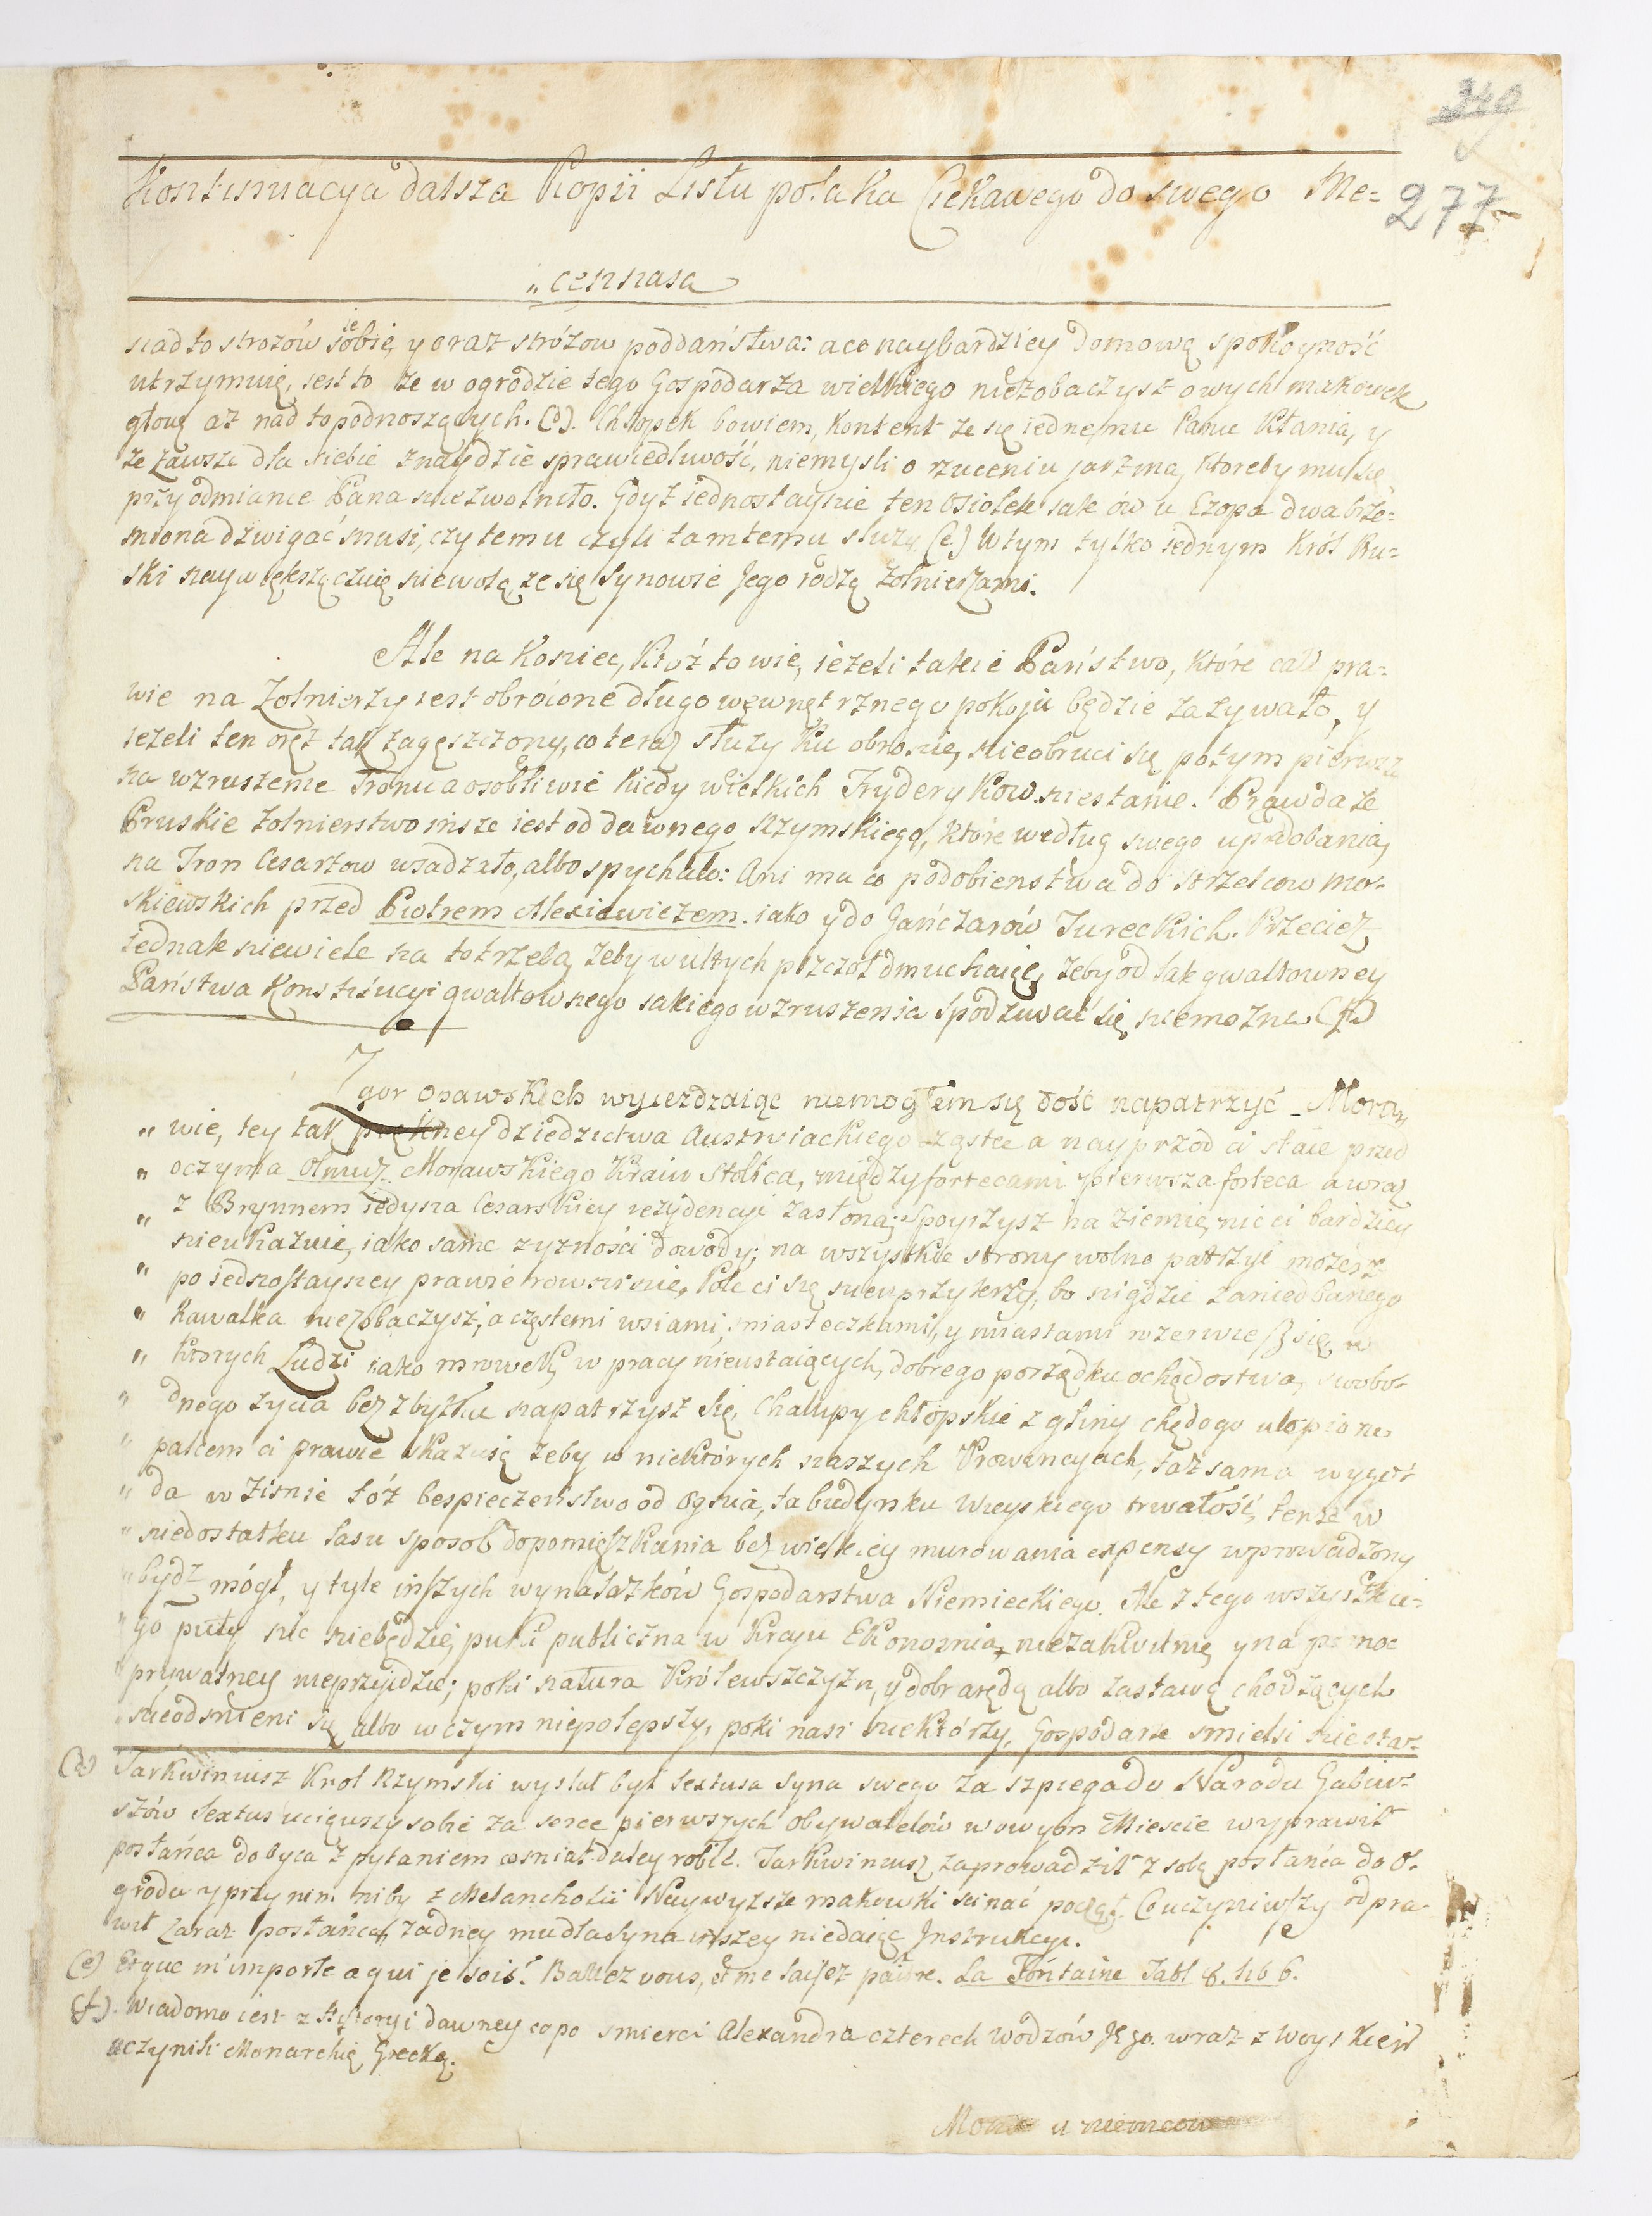 349
277
Kontynuacya dalsza Kopii Listu polaka Ciekawego do swego Me=
„cennasa
nad to strozów sobie, y oraz strózow poddaństwa: a co naybardziey domową spokoyność
utrzymuię, iest to że w ogrodzie tego Gospodarza wielkiego niezobaczysz owych makówek
głowę aż nad to podnoszących. (d). Chłopek bowiem, kontent że się iednemu Panu kłania, y
że zawsze dla siebie znaydzie sprawiedliwość, niemysli o rzuceniu jarzma, ktoreby mu się
przy odmianie Pana nie zwolniło. Gdyż iednostaynie ten Osiołek iak ów u Ezopa dwa brze=
miona dzwigać musi, czy temu czyli tamtemu służy. (e) W tym tylko iednym Król Pru=
ski naywiększą czuię niewolą, że się Synowie Jego rodzą żołnierzami.
Ale na koniec, Któż to wie, ieżeli takie Państwo, które całe pra=
wie na Zołnierzy iest obrócone długo wewnętrznego pokoju będzie zażywało, y
ieżeli ten oręż tak zagęszczony, co teraz służy ku obronie, nieobruci się potym pierwszy
na wzruszenie Tronu a osobliwie kiedy wielkich Fryderykow niestanie. Prawda że
Pruskie żołnierstwo insze iest od dawnego Rzymskiego, które według swego upodobania,
na Tron Cesarzow wsadzało, albo spychało: Ani ma co podobienstwa do strzelcow Mo=
skiewskich przed Piotrem Alexiewiczem. iako y do Jańczarów Tureckich. Przecież
iednak niewiele na to trzeba, żeby w ultych pszczoł dmuchaiąc, żeby od tak gwałtowney
Państwa Konstytucyi gwałtownego iakiego wzruszenia spodziwać się niemożna (f)
Z gor Opawskich wyieżdzaiąc niemogłem się dość napatrzyć Mora„
„ wie, tey tak piękney dziedzictwa Austryiackiego cząstce a nayprzod ci staie przed
„ oczyma Olmuz Morawskiego Kraiu Stolica, między fortecami pierwsza forteca a wraz
„ z Brynnem iedyna Cesarskiey rezydencyi zasłona; Spoyrzysz na ziemię, nic ci bardziey
„ nieukazuie, iako same żyzności dowody; na wszystkie strony wolno patrzyć możesz
„ po iednostayney prawie rowninie, Pole ci się nieuprzykrzy, bo nigdzie zaniedbanego
„ Kawalka niezobaczysz, a częstemi wsiami, miasteczkami, y miastami rozerwiesz się, w
„ ktorych Ludzi iako mrowek w pracy nieustaiących, dobrego porządku ochędostwa, swobo=
„ dnego życia bez zbytku napatrzysz się, Chałupy chłopskie z gliny chędogo ulepione
„ palcem ci prawie skazuią żeby w niektórych naszych Prowincyach, taż sama wygo=
„ da w zimie tóż bespieczeństwo od Ognia, ta budynku wieyskiego trwałość, tenże w
„ niedostatku lasu sposob do pomięszkania bez wielkiey murowania expensy wprowadzony
„ bydz mógł, y tyle inszych wynalazków Gospodarstwa Niemieckiego. Ale z tego wszystkie=
„ go puty nic niebędzie, puki publiczna w Kraju Ekonomia, niezakwitnie, y na pomoc
„ prywatney nieprzyidzie; poki natura Królewszczyzn, y dobr arędą albo zastawą chodzących
„ nieodmieni się albo w czym niepolepszy, poki nasi niektórzy, Gospodarze smielsi niestar=
(d) Tarkwiniusz Krol Rzymski wysłał był Sextusa Syna swego za szpiega do Narodu Gabin=
szów Sextus uciągnoszy sobie za serce pierwszych Obywatelów w owym Miescie wyprawił
posłańca do Oyca z pytaniem co miał daley robić. Tarkwiniusz, zaprowadził z sobą posłańca do O=
grodu y przy nim niby z Melancholii Naywyższe makowki scinać począł. Co uczyniwszy odpra=
wił zaraz posłańca, żadney mu dla Syna inszey niedaiąc Instrukcyi.
(e) Et que m'importe a qui je sois? Battez vous, et me laissez paitre. La Fontaine Fabl. 8. lib 6.
(f). Wiadomo iest z Historyi dawney co po smierci Alexandra czterech Wodzów Jego. wraz z Woyskiem
uczynili Monarchię Grecką.
u niemcow